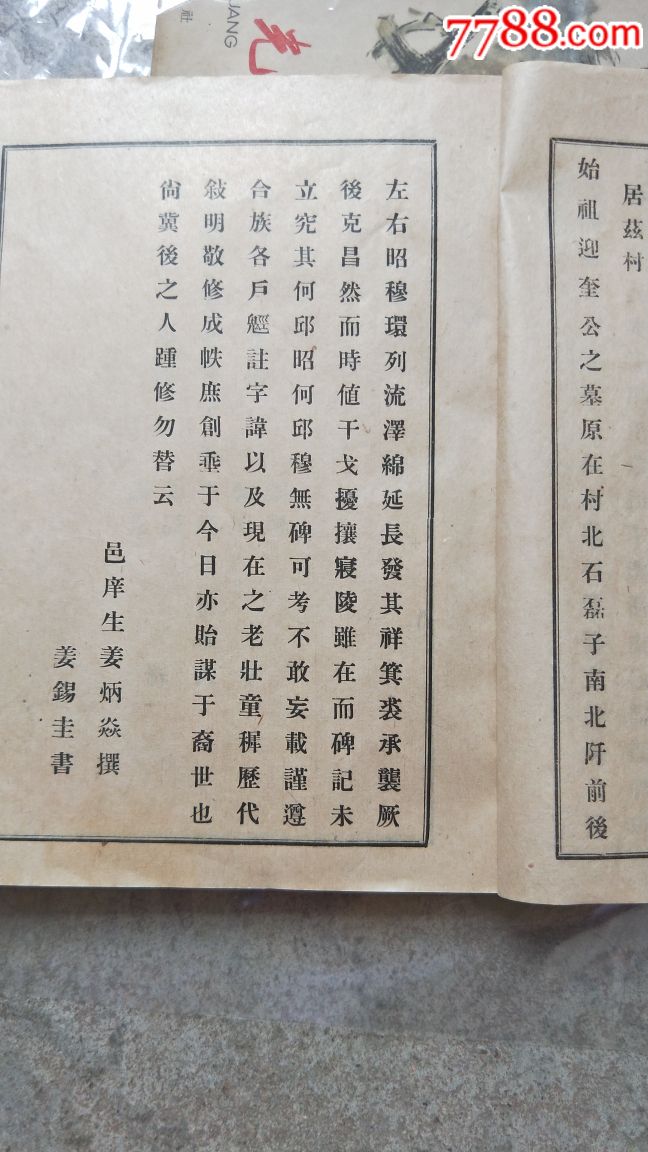 7788.com
UANG
社
光
居茲村
始祖迎奎公之墓原在村北石磊子南北阡前後
左右昭穆環列流澤綿延長發其祥箕裘承襲厥
後克昌然而時値干戈擾攘寢陵雖在而碑記未
立究其何邱昭何邱穆無碑可考不敢妄載謹遵
合族各戶經註字諱以及現在之老壯童穉歷代
敍明敬修成帙庶創垂于今日亦貽謀于裔世也
尙冀後之人踵修勿替云
邑庠生姜炳焱撰
姜錫圭書